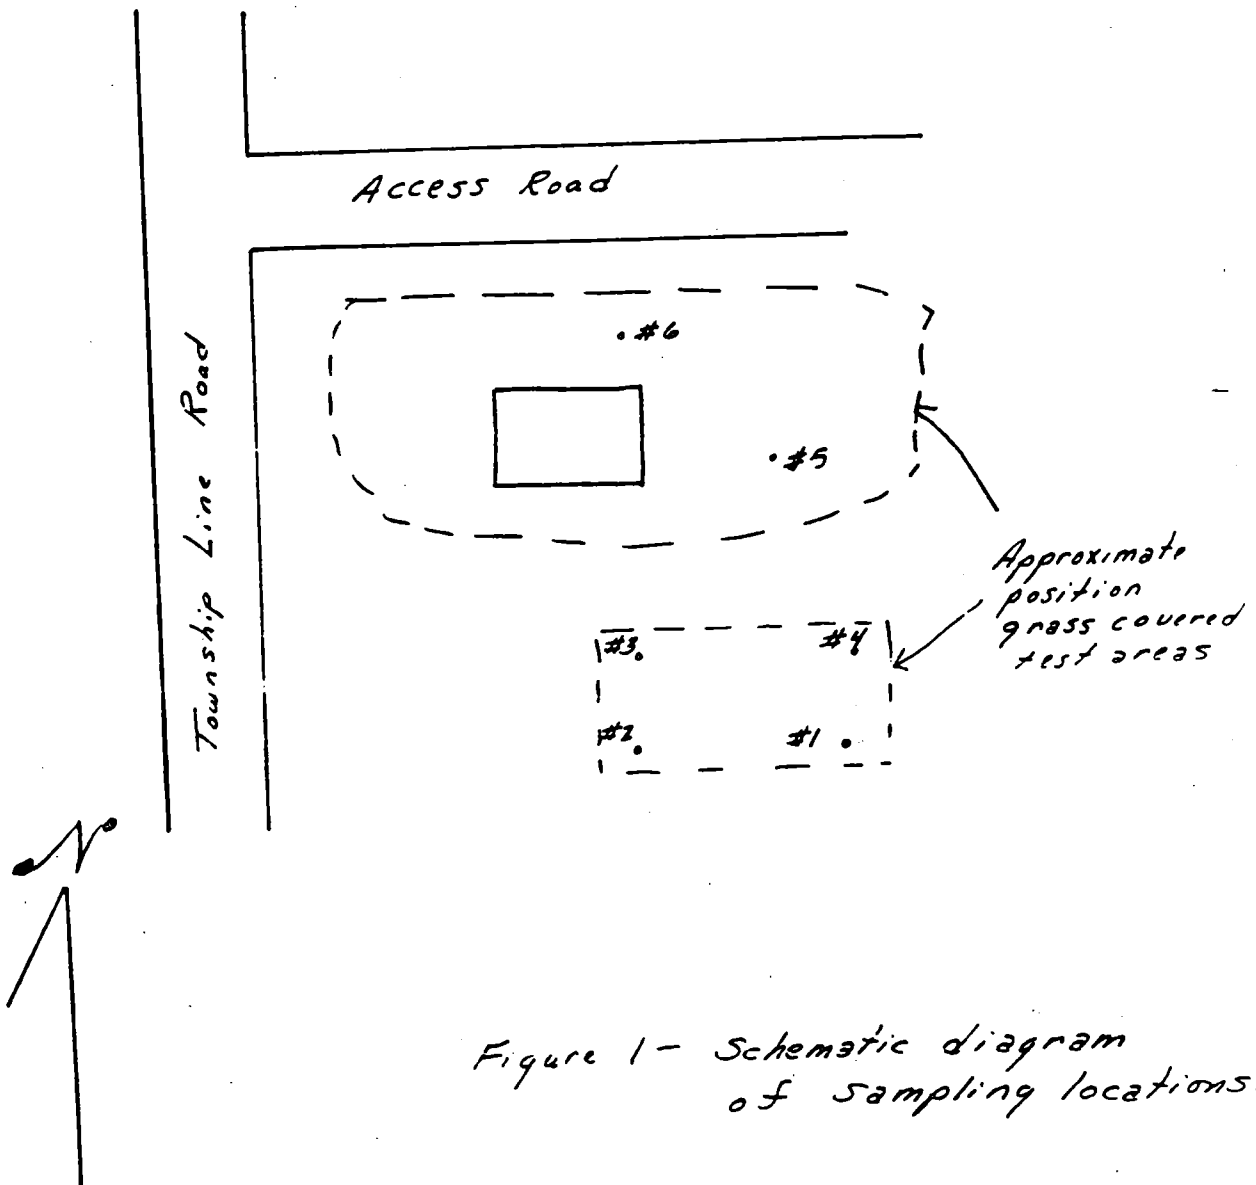 Access Road
Township Line Road
#6
#5
Approximate
position
grass covered
test areas
#3
#4
#2
#1
N
Figure 1 - Schematic diagram
of sampling locations